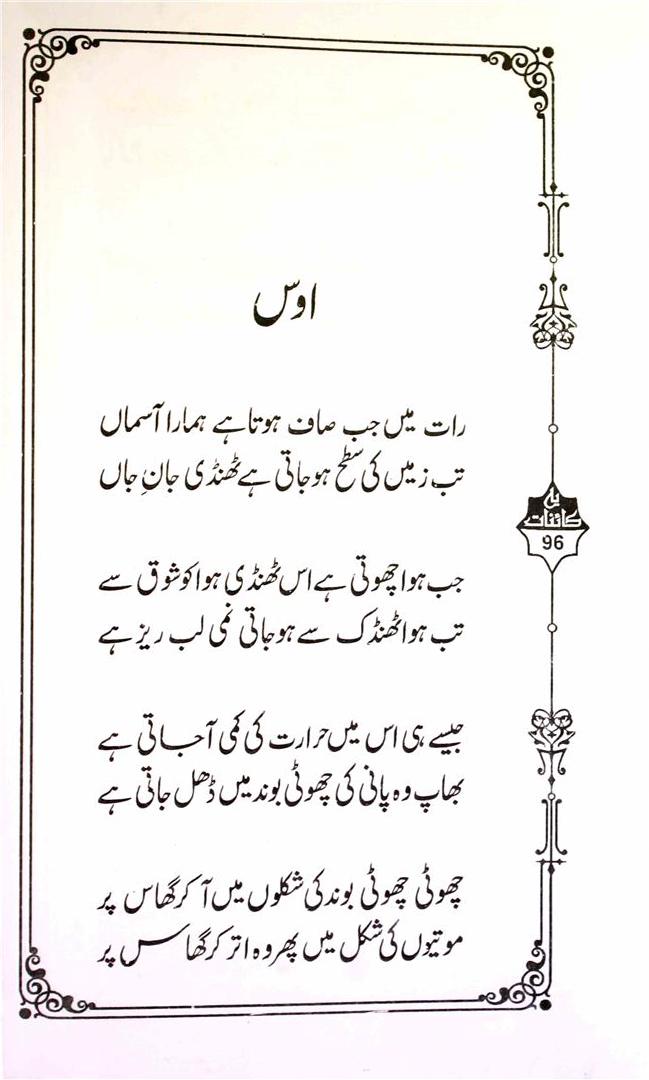 اوس
رات میں جب صاف ہوتا ہے ہمارا آسماں
تب زمیں کی سطح ہوجاتی ہے ٹھنڈی جانِ جاں
جب ہوا چھوتی ہے اس ٹھنڈی ہوا کو شوق سے
تب ہوا ٹھنڈک سے ہوجاتی نمی لب ریز ہے
جیسے ہی اس میں حرارت کی کمی آجاتی ہے
بھاپ وہ پانی کی چھوٹی بوند میں ڈھل جاتی ہے
چھوٹی چھوٹی بوند کی شکلوں میں آ کر گھاس پر
موتیوں کی شکل میں پھر وہ اتر کر گھاس پر
یہ
کائنات
96